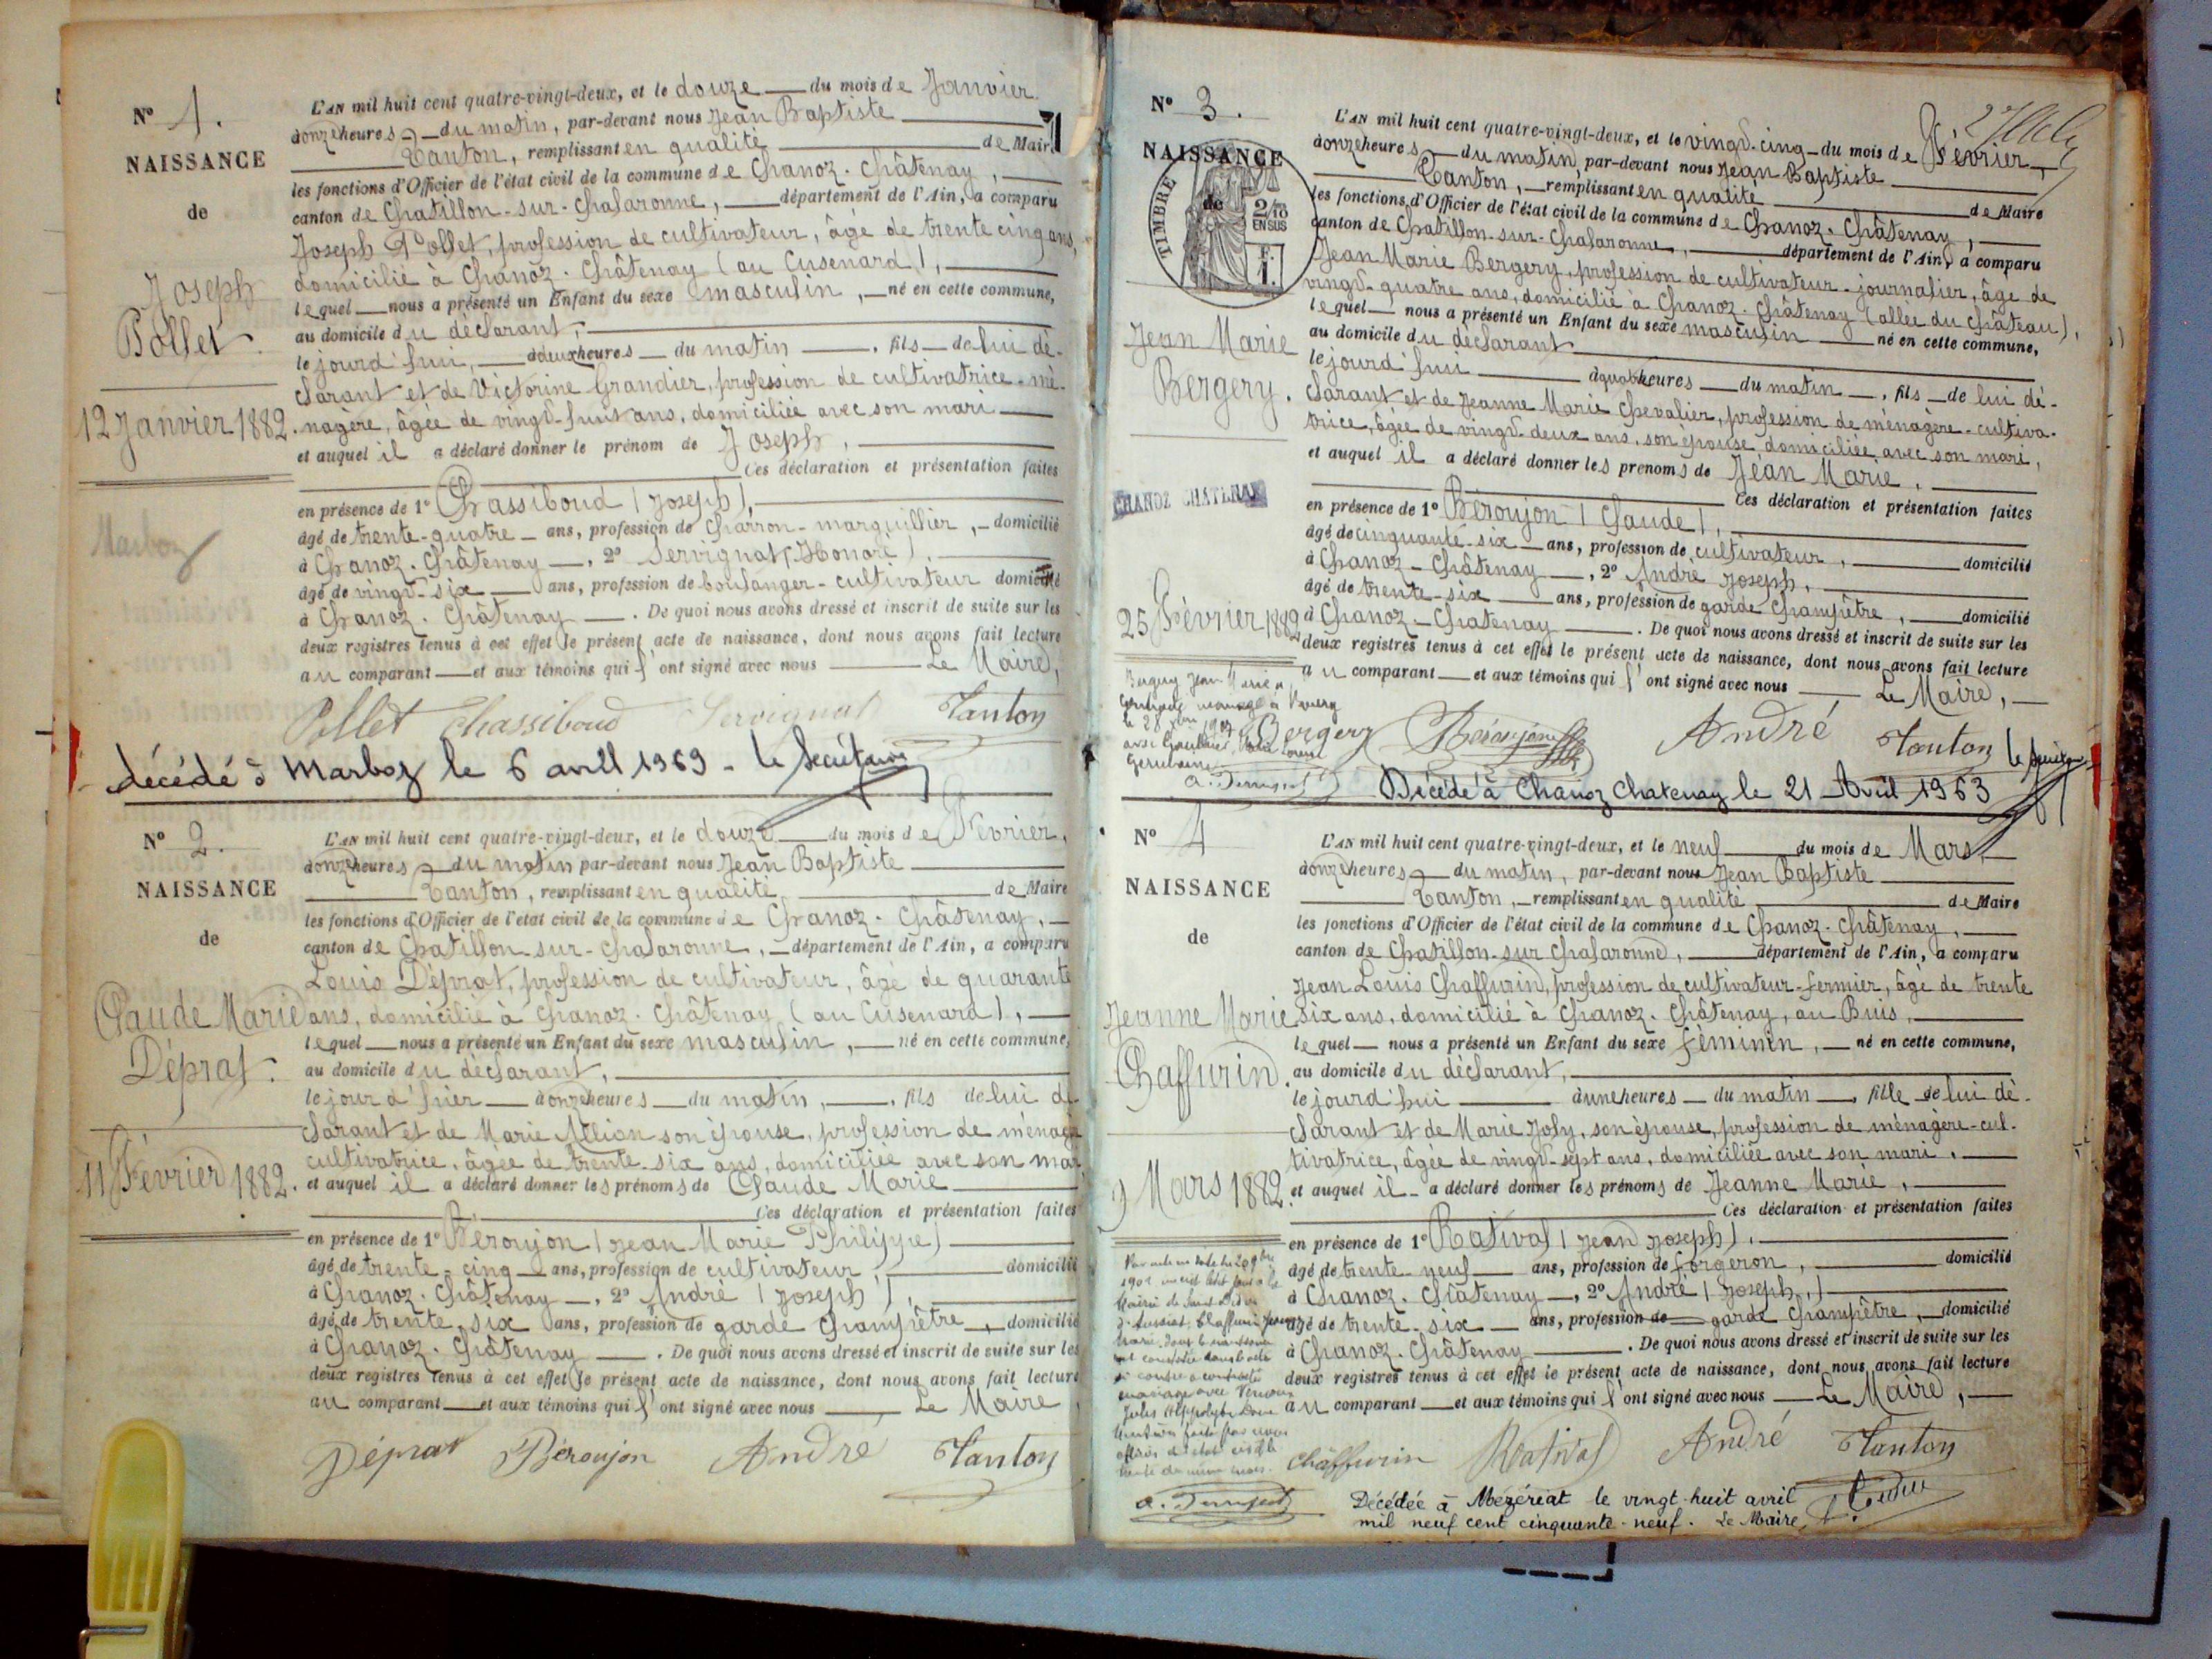 N° 1.
NAISSANCE
de
Joseph
Pollet.
12 Janvier 1882.
Marboz
L'AN mil huit cent quatre-vingt-deux, et le douze du mois de Janvier
à onze heures du matin, par-devant nous Jean Baptiste
Tanton, remplissant en qualité de Maire
les fonctions d'Officier de l'état civil de la commune de Chanoz-Châtenay,
canton de Chatillon-sur-Chalaronne, département de l'Ain, a comparu
Joseph Pollet, profession de cultivateur, âgé de trente cinq ans,
domicilié à Chanoz-Châtenay (au Cusenard),
lequel nous a présenté un Enfant du sexe masculin, né en cette commune,
au domicile du déclarant,
le jourd'hui, à deux heures du matin, fils de lui dé-
clarant et de Victorine Grandier, profession de cultivatrice-mé-
nagère, âgée de vingt-huit ans, domiciliée avec son mari
et auquel il a déclaré donner le prénom de Joseph,
Ces déclaration et présentation faites
en présence de 1° Chassiboud (Joseph),
âgé de trente-quatre ans, profession de Charron-marguillier, domicilié
à Chanoz-Châtenay, 2° Servignat (Honoré),
âgé de vingt-six ans, profession de boulanger-cultivateur domicilié
à Chanoz-Châtenay. De quoi nous avons dressé et inscrit de suite sur les
deux registres tenus à cet effet le présent acte de naissance, dont nous avons fait lecture
au comparant et aux témoins qui l'ont signé avec nous Le Maire,
Pollet Chassiboud Servignat Tanton
décédé à Marboz le 6 avril 1969 - le Secrétaire
N° 2.
NAISSANCE
de
Claude Marie
Déprat.
11 Février 1882.
L'AN mil huit cent quatre-vingt-deux, et le douze du mois de Février,
à onze heures du matin par-devant nous Jean Baptiste
Tanton, remplissant en qualité de Maire
les fonctions d'Officier de l'état civil de la commune de Chanoz-Châtenay,
canton de Chatillon-sur-Chalaronne, département de l'Ain, a comparu
Louis Déprat, profession de cultivateur, âgé de quarante
ans, domicilié à Chanoz-Châtenay (au Cusenard),
lequel nous a présenté un Enfant du sexe masculin, né en cette commune,
au domicile du déclarant,
le jour d'hier à onze heures du matin, fils de lui dé-
clarant et de Marie son épouse, profession de ménagère
cultivatrice, âgée de trente-six ans, domiciliée avec son mari
et auquel il a déclaré donner les prénoms de Claude Marie
Ces déclaration et présentation faites
en présence de 1° Béroujon (Jean Marie Philippe)
âgé de trente-cinq ans, profession de cultivateur, domicilié
à Chanoz-Châtenay, 2° André (Joseph),
âgé de trente six ans, profession de garde champêtre, domicilié
à Chanoz-Châtenay. De quoi nous avons dressé et inscrit de suite sur les
deux registres tenus à cet effet le présent acte de naissance, dont nous avons fait lecture
au comparant et aux témoins qui l'ont signé avec nous Le Maire
Déprat Béroujon André Tanton
N° 3.
NAISSANCE
de
TIMBRE
2/10
EN SUS
F.
1.
Jean Marie
Bergery.
CHANOZ CHATENAY
25 Février 1882
L'AN mil huit cent quatre-vingt-deux, et le vingt-cinq du mois de Février
à onze heures du matin, par-devant nous Jean Baptiste
Tanton, remplissant en qualité de Maire
les fonctions d'Officier de l'état civil de la commune de Chanoz-Châtenay,
canton de Chatillon-sur-Chalaronne, département de l'Ain, a comparu
Jean Marie Bergery, profession de cultivateur-journalier, âgé de
vingt-quatre ans, domicilié à Chanoz-Châtenay (allée du Château),
lequel nous a présenté un Enfant du sexe masculin né en cette commune,
au domicile du déclarant
le jourd'hui à quatre heures du matin, fils de lui dé-
clarant et de Jeanne Marie Chevalier, profession de ménagère-cultiva-
trice, âgée de vingt-deux ans, son épouse, domiciliée avec son mari,
et auquel il a déclaré donner les prénoms de Jean Marie.
Ces déclaration et présentation faites
en présence de 1° Béroujon (Claude),
âgé de cinquante-six ans, profession de cultivateur, domicilié
à Chanoz-Châtenay, 2° André Joseph,
âgé de trente-six ans, profession de garde-champêtre, domicilié
à Chanoz-Chatenay. De quoi nous avons dressé et inscrit de suite sur les
deux registres tenus à cet effet le présent acte de naissance, dont nous avons fait lecture
au comparant et aux témoins qui l'ont signé avec nous Le Maire,
Bergery Jean Marie a
contracté mariage à
le 28
Bergery Béroujon André Tanton
Décédé à Chanoz Chatenay le 21 Avril 1963
N° 4
NAISSANCE
de
Jeanne Marie
Chaffurin.
9 Mars 1882.
L'AN mil huit cent quatre-vingt-deux, et le neuf du mois de Mars,
à onze heures du matin, par-devant nous Jean Baptiste
Tanton, remplissant en qualité de Maire
les fonctions d'Officier de l'état civil de la commune de Chanoz-Châtenay,
canton de Chatillon-sur-Chalaronne, département de l'Ain, a comparu
Jean Louis Chaffurin, profession de cultivateur-fermier, âgé de trente
six ans, domicilié à Chanoz-Châtenay, au Buis,
lequel nous a présenté un Enfant du sexe féminin, né en cette commune,
au domicile du déclarant,
le jourd'hui à une heures du matin, fille de lui dé-
clarant et de Marie Joly, son épouse, profession de ménagère-cul-
tivatrice, âgée de vingt-sept ans, domiciliée avec son mari,
et auquel il a déclaré donner les prénoms de Jeanne Marie,
Ces déclaration et présentation faites
en présence de 1° Rativat (Jean Joseph),
âgé de trente-neuf ans, profession de forgeron, domicilié
à Chanoz-Châtenay, 2° André (Joseph,)
âgé de trente-six ans, profession de garde champêtre, domicilié
à Chanoz-Châtenay. De quoi nous avons dressé et inscrit de suite sur les
deux registres tenus à cet effet le présent acte de naissance, dont nous avons fait lecture
au comparant et aux témoins qui l'ont signé avec nous Le Maire,
mariage avec
Chaffurin Rativat André Tanton
Décédée à Mézériat le vingt-huit avril
mil neuf cent cinquante-neuf. Le Maire,